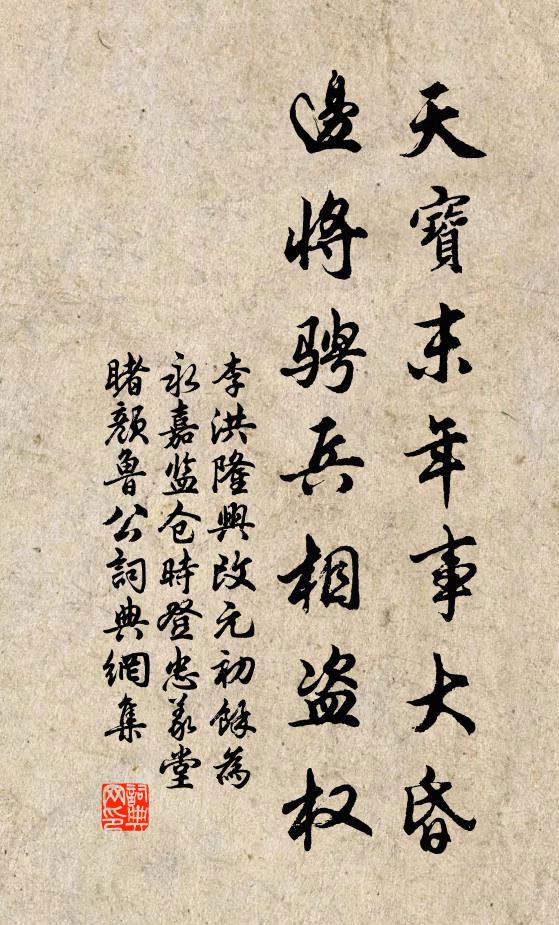 天寶末年事大昏
邊將骋兵相盗权
李洪隆興改元初餘為
永嘉监仓時登忠義堂
睹顏魯公詞典網集
詞典
网印